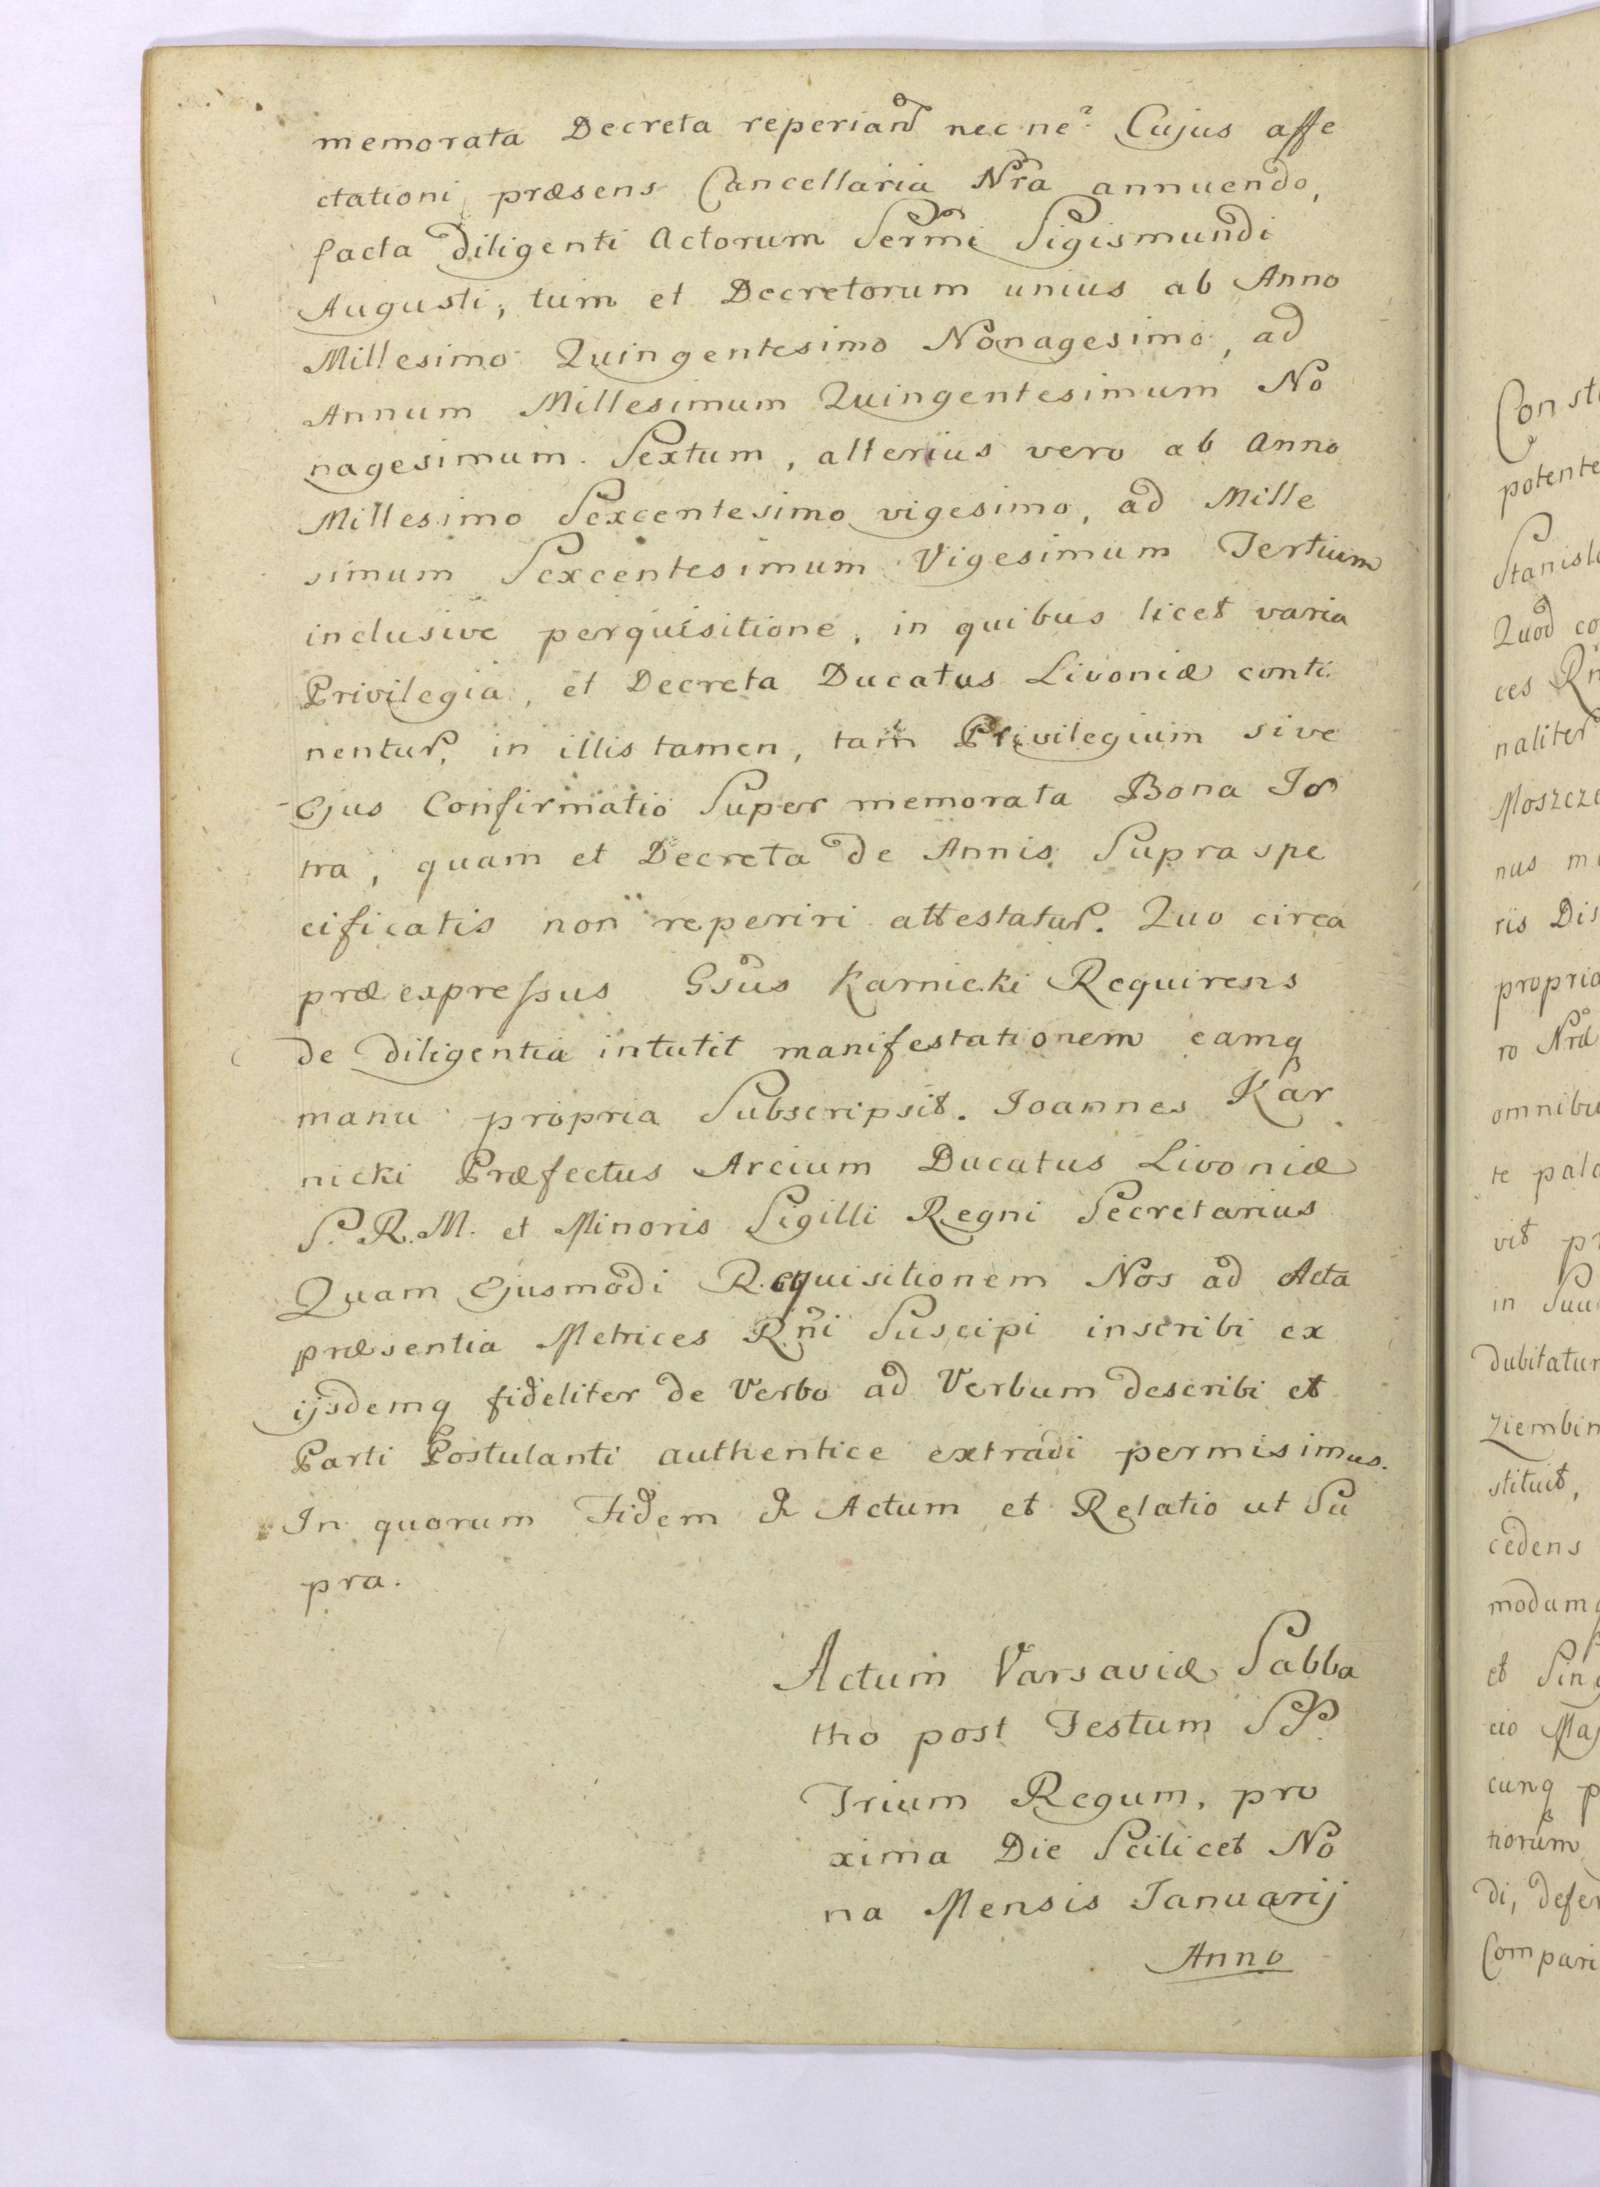 memorata Decreta reperiant nec ne? Cujus affe
ctationi præsens Cancellaria Nra annuendo,
facta diligenti Actorum Sermi Sigismundi
Augusti, tum et Decretorum unius ab Anno
Millesimo Quingentesimo Nonagesimo, ad
Annum Millesimum Quingentesimum No
nagesimum Sextum, alterius vero ab Anno
Millesimo Sexcentesimo vigesimo, ad Mille
simum Sexcentesimum Vigesimum Tertium
inclusive perquisitione, in quibus licet varia
Privilegia, et Decreta Ducatus Livoniæ conti
nentur, in illis tamen, tam Privilegium sive
Ejus Confirmatio Super memorata Bona
tra, quam et Decreta de Annis Supra spe
cificatis non reperiri attestatur. Quo circa
præexpressus Gsus Karnicki Requirens
de diligentia intulit manifestationem eamq
manu propria Subscripsit. Joannes Kar
nicki Præfectus Arcium Ducatus Livoniæ
S. R. M. et Minoris Sigilli Regni Secretarius
Quam Ejusmodi Requisitionem Nos ad Acta
præsentia Metrices Rni Suscipi inscribi ex
ijsdemq fideliter de Verbo ad Verbum describi et
Parti Postulanti authentice extradi permisimus.
In quorum Fidem & Actum et Relatio ut Su
pra.
Actum Varsaviæ Sabba
tho post Festum SS.
Trium Regum, pro
xima Die Scilicet No
na Mensis Januarij
Anno
Const
potente
Stanisl
Quod co
ces Rn
naliter
Moszcze
nus mi
ris Dis
propria
ro Nra
omnibu
te pala
vit pr
in Suu
dubitatur
ziembin
stituit,
cedens
modumq
et Sing
cio Maj
cunq p
tiorum
di, defer
Compari